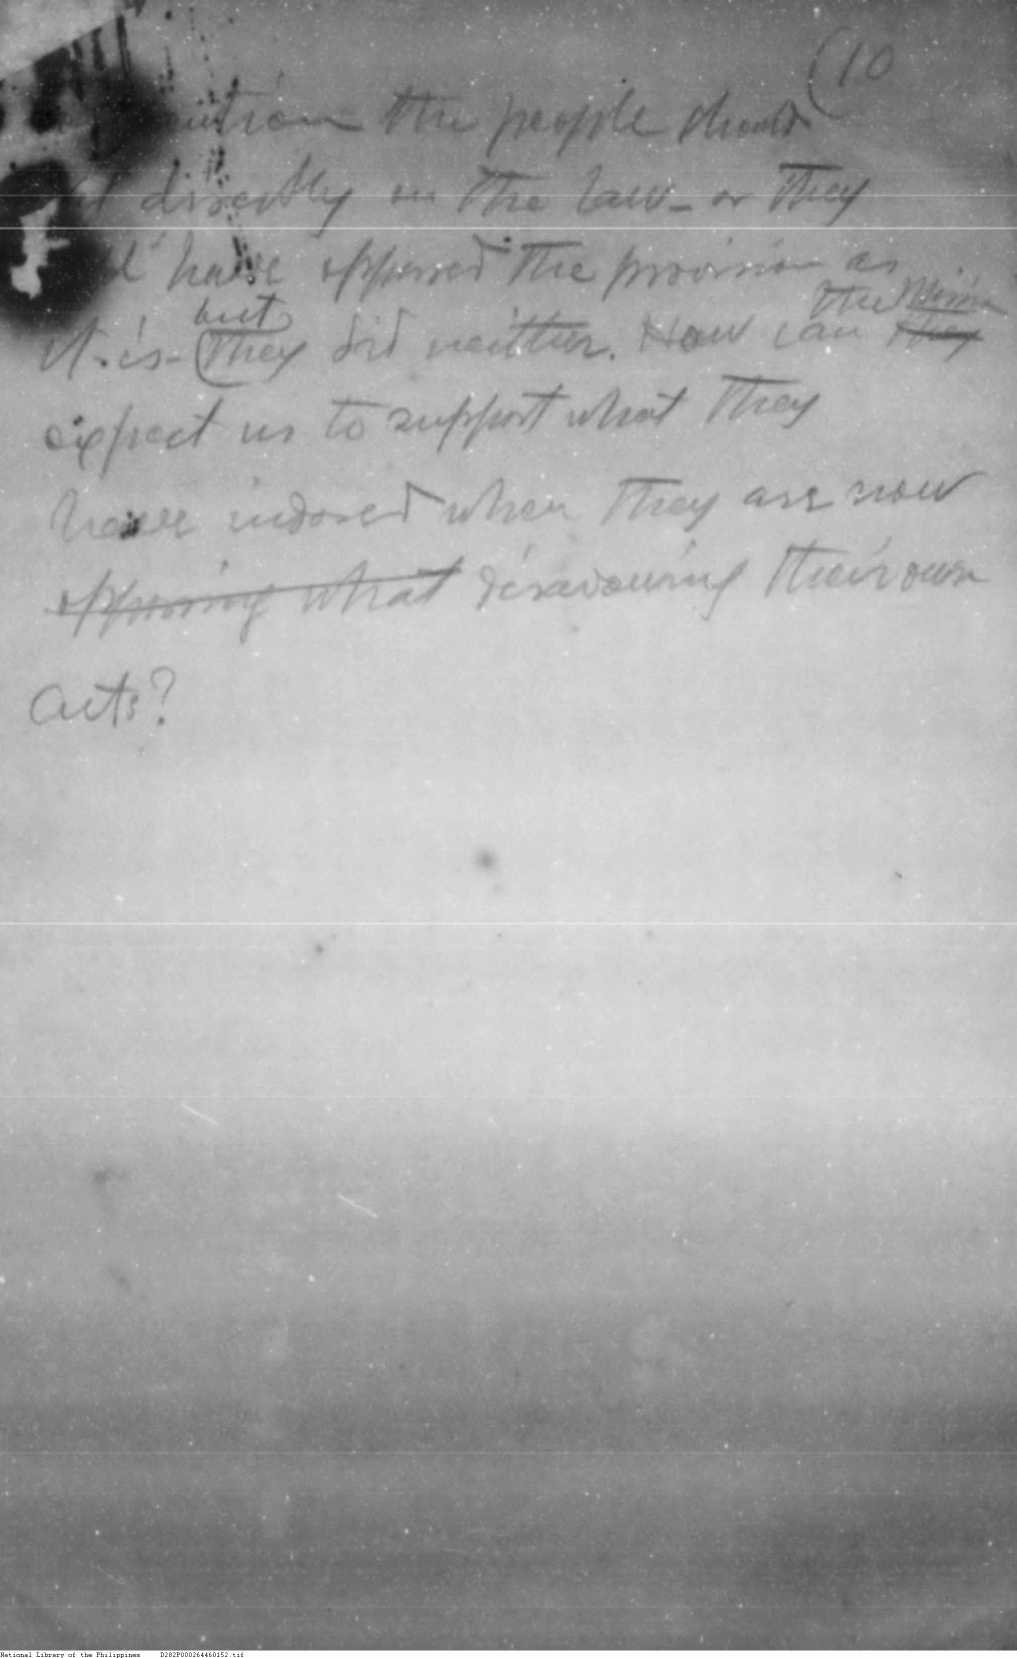 (10
the people should
directly on the law - or they
have opposed the provision as
but the
it is - (They did neither. How can they
expect us to support what they
never indorsed when they are now
opposing what disavowing their own
acts?
National Library of the Philippines D282P000264460152.tif